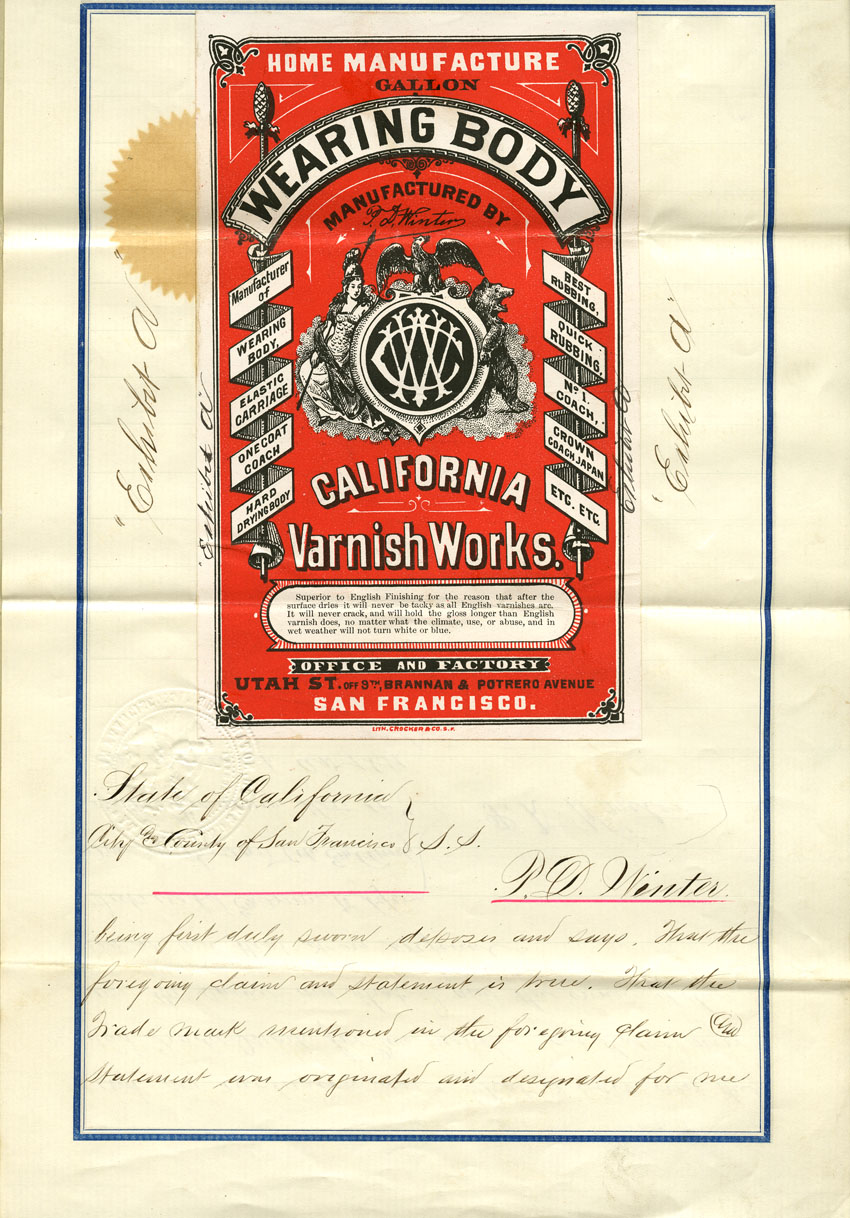 HOME MANUFACTURE
GALLON
WEARING BODY
MANUFACTURED BY
P. D. Winter
Manufacturer
of
WEARING
BODY,
ELASTIC
CARRIAGE
ONE COAT
COACH
HARD
DRYING BODY
BEST
RUBBING,
QUICK
RUBBING
No. 1.
COACH,
CROWN
COACH JAPAN
ETC. ETC.
CWW
CALIFORNIA
Varnish Works.
Superior to English Finishing for the reason that after the
surface dries it will never be tacky as all English varnishes are.
It will never crack, and will hold the gloss longer than English
varnish does, no matter what the climate, use, or abuse, and in
wet weather will not turn white or blue.
OFFICE AND FACTORY
UTAH ST. OFF 9TH, BRANNAN & POTRERO AVENUE
SAN FRANCISCO.
LITH. CROCKER & CO. S.F.
"Exhibit A"
"Exhibit A"
Exhibit A
"Exhibit A"
State of California
City & County of San Francisco } S.S.
P. D. Winter
being first duly sworn deposes and says. That the
foregoing claim and statement is true. That the
Trade mark mentioned in the foregoing claim and
statement was originated and designated for me